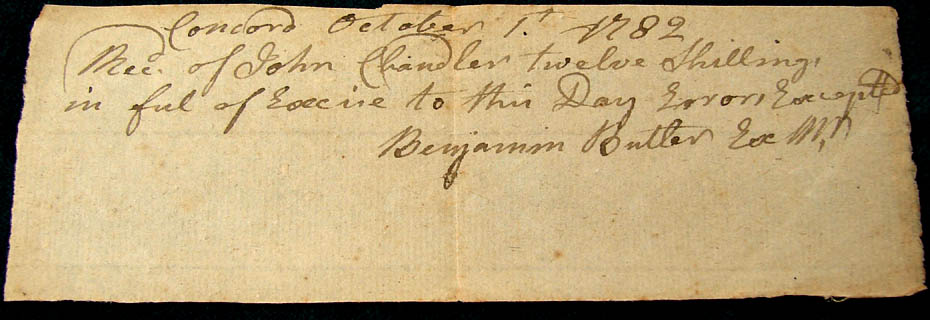 Concord October 1st 1782
Recd. of John Chandler twelve Shillings
in ful of Excise to this Day Errors Excepted
Benjamin Butler Ex Mr